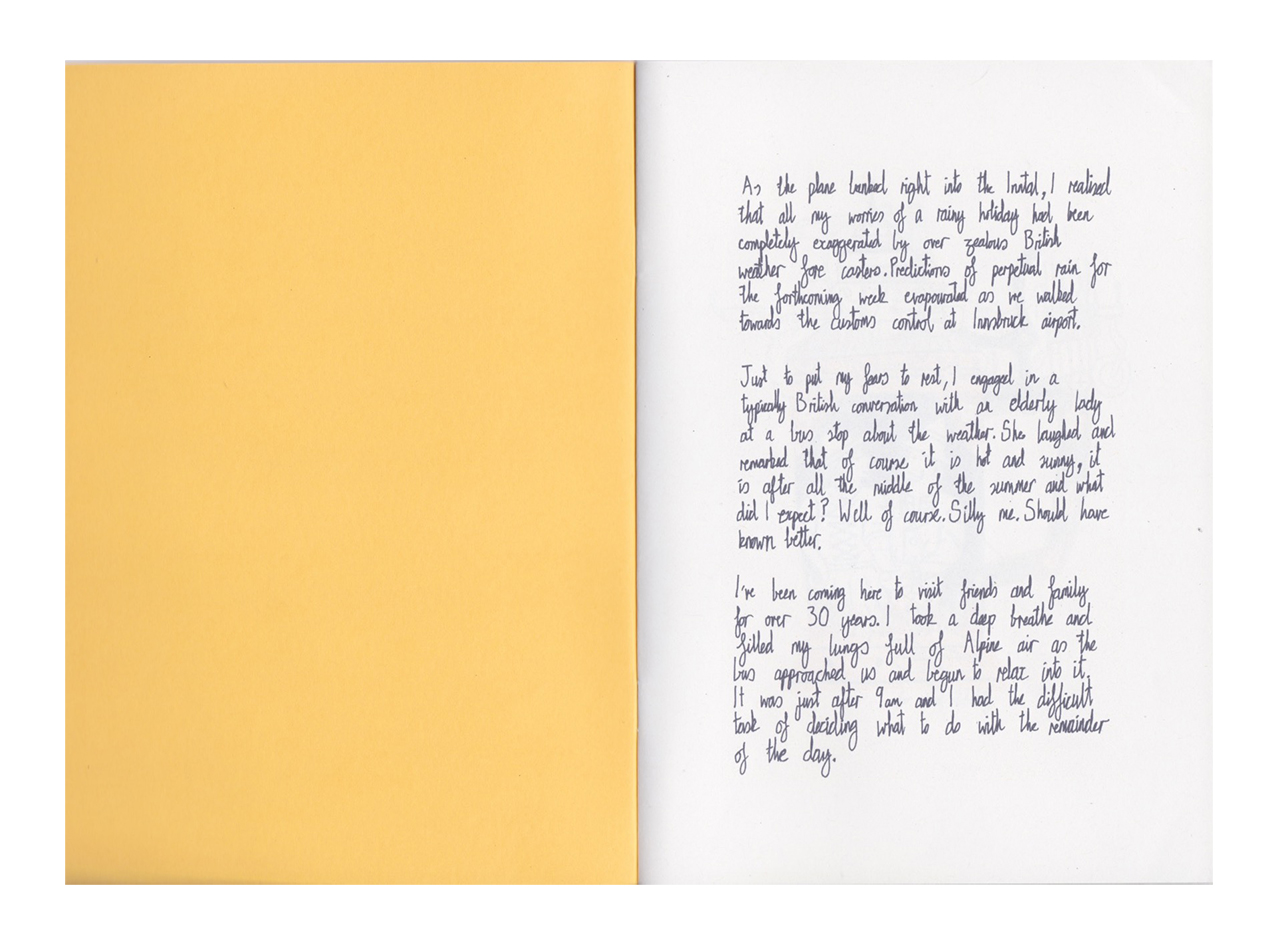 As the plane banked right into the Inntal, I realised
that all my worries of a rainy holiday had been
completely exaggerated by over zealous British
weather fore casters. Predictions of perpetual rain for
the forthcoming week evapourated as we walked
towards the customs control at Innsbruck airport.
Just to put my fears to rest, I engaged in a
typically British conversation with an elderly lady
at a bus stop about the weather. She laughed and
remarked that of course it is hot and sunny, it
is after all the middle of the summer and what
did I expect? Well of course. Silly me. Should have
known better.
I've been coming here to visit friends and family
for over 30 years. I took a deep breathe and
filled my lungs full of Alpine air as the
bus approached us and begun to relax into it.
It was just after 9am and I had the difficult
task of deciding what to do with the remainder
of the day.